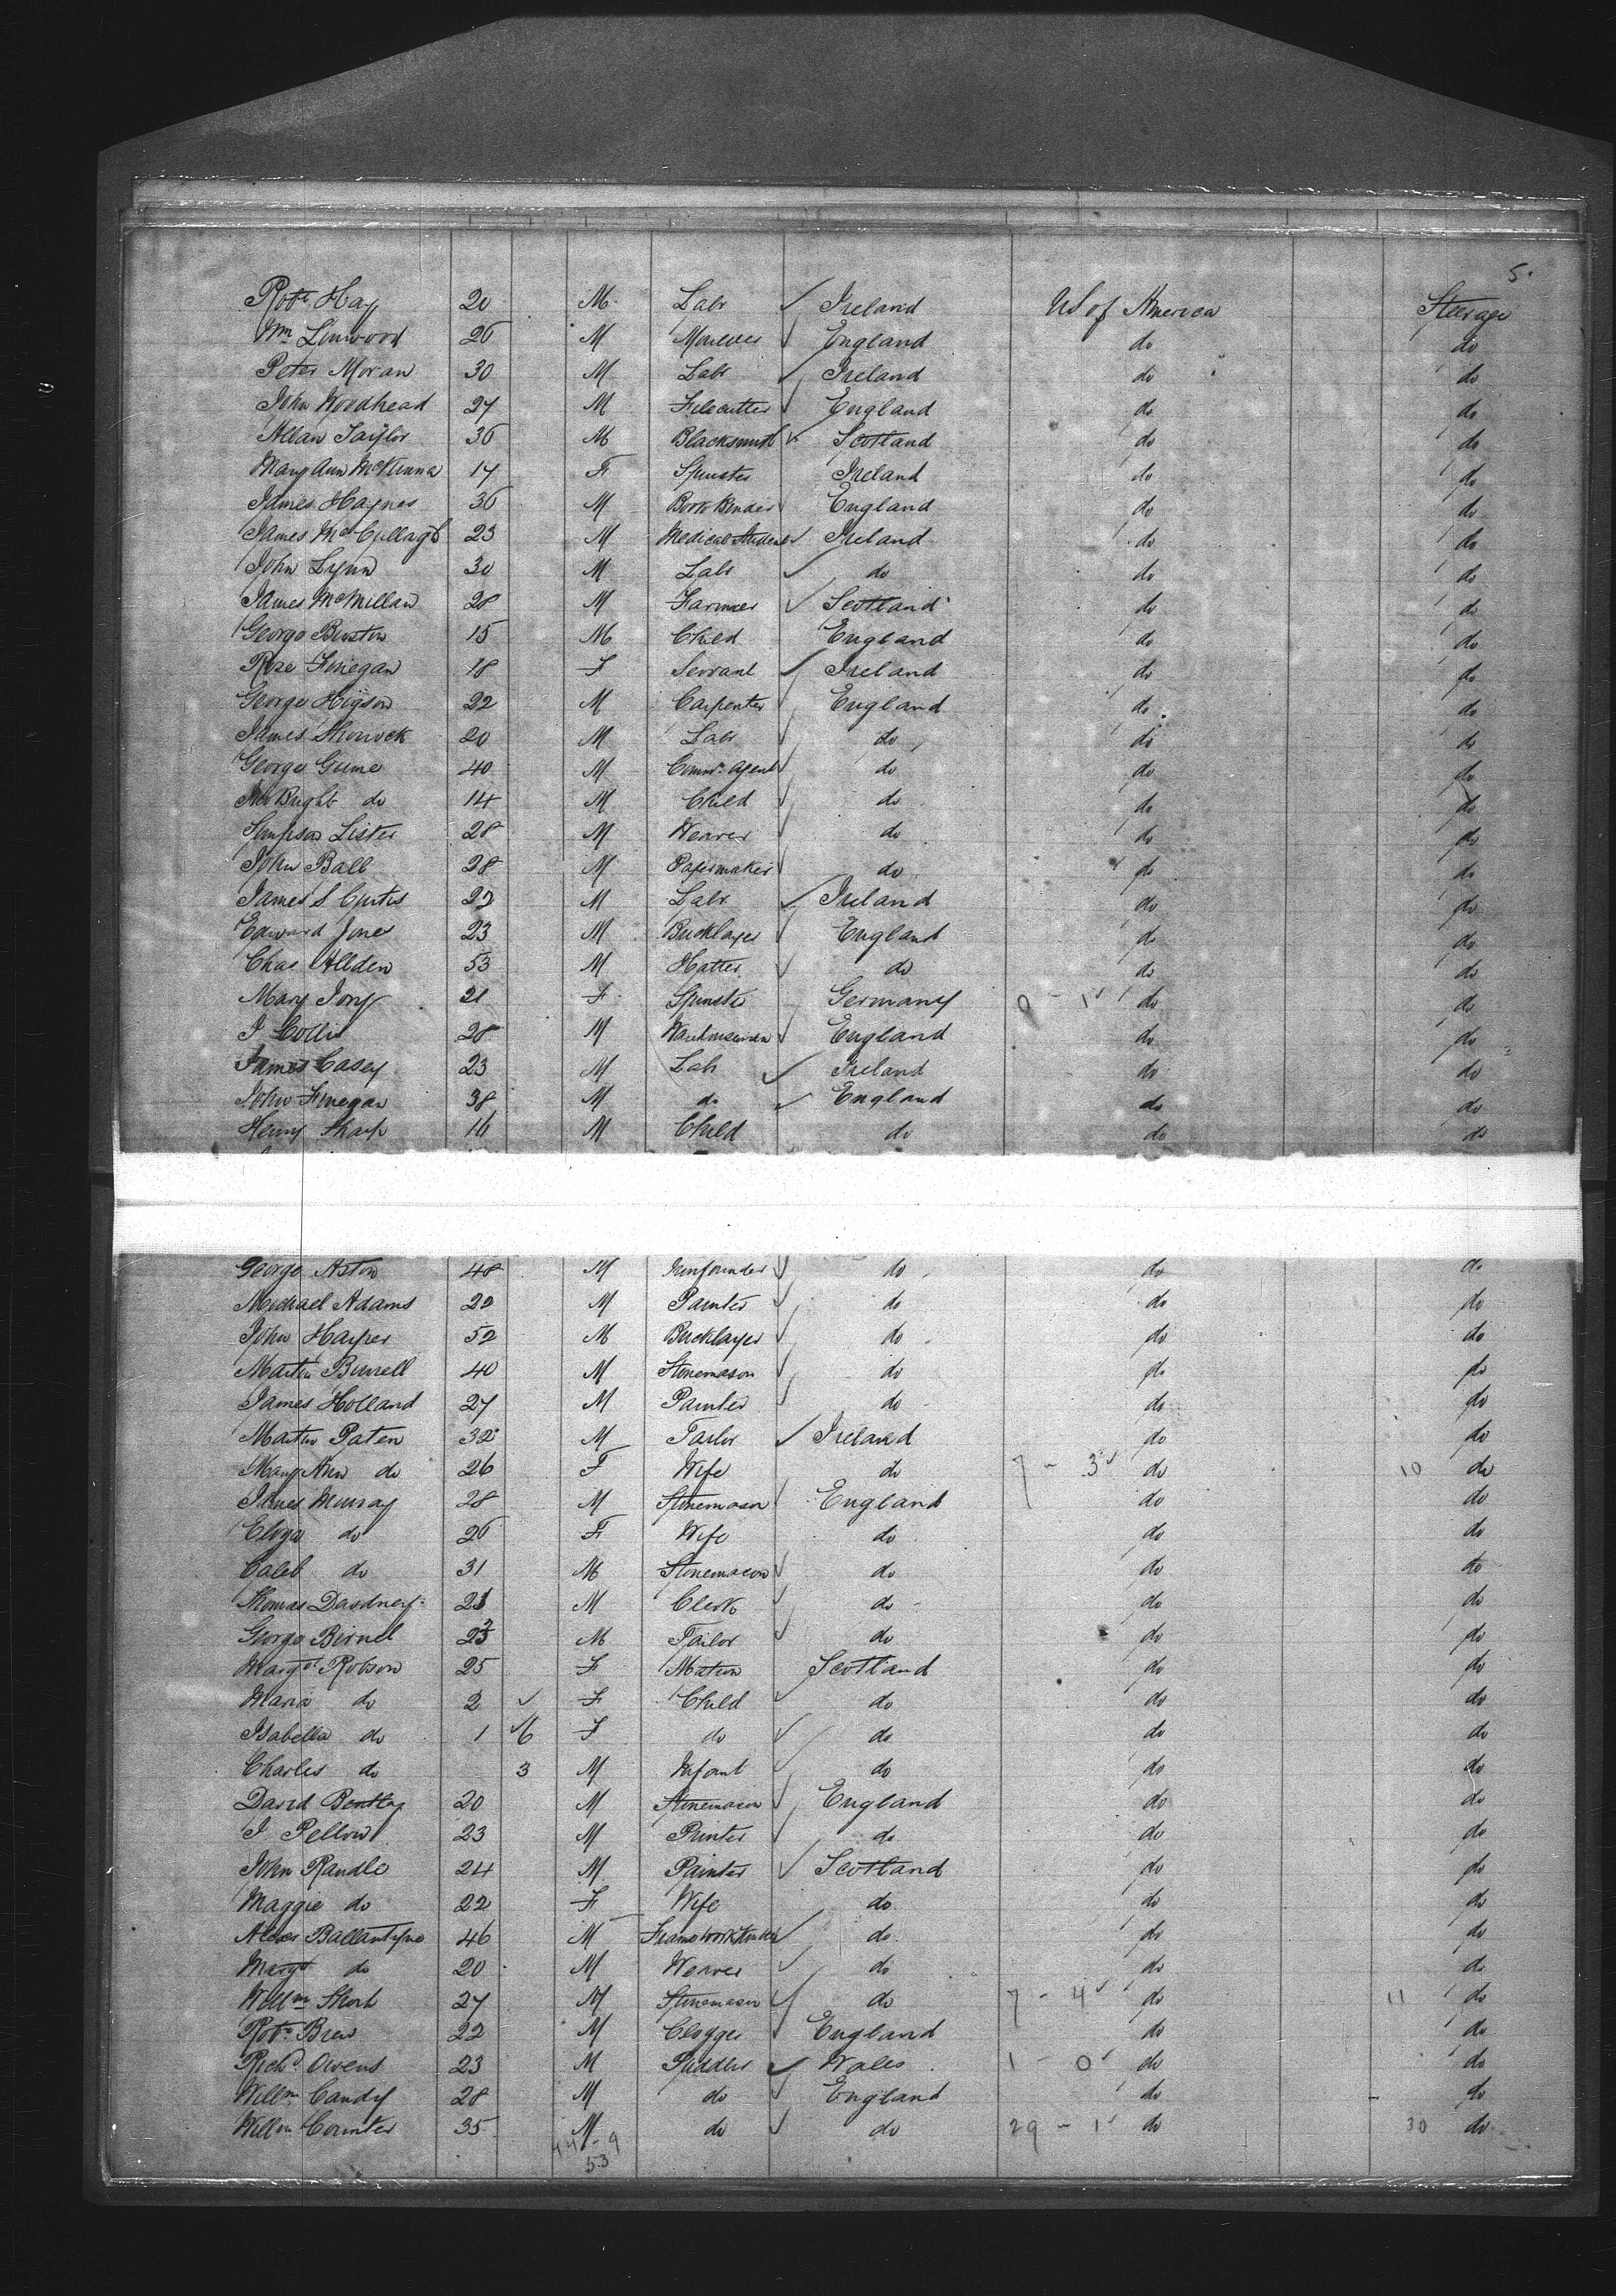 5.
Robt Hay 20 M Labr Ireland US of America Steerage
Wm Linwood 26 M England do do
Peter Moran 30 M Labr Ireland do do
John Woodhead 27 M Filecutter England do do
Allan Taylor 36 M Blacksmith Scotland do do
Mary Ann McKenna 17 F Spinster Ireland do do
James Haynes 36 M Book Binder England do do
James McCullagh 23 M Medical Student Ireland do do
John Lynn 30 M Labr do do do
James McMillan 28 M Farmer Scotland do do
George Buston 15 M Child England do do
Rose Finegan 18 F Servant Ireland do do
George Higson 22 M Carpenter England do do
James Shorrock 20 M Labr do do do
George 40 M Commn Agent do do do
do 14 M Child do do do
Simpson Lister 28 M Weaver do do do
John Ball 28 M Papermaker do do do
James S Curtis 22 M Labr Ireland do do
Edward Jones 23 M Bricklayer England do do
Chas Allden 53 M Hatter do do do
Mary 21 F Spinster Germany 0 - 1 do do
J Collis 28 M Warehouseman England do do
James Casey 23 M Labr Ireland do do
John Finegan 38 M do England do do
Henry Sharp 16 M Child do do do
George Aston 48 M Ironfounder do do do
Michael Adams 22 M Painter do do do
John Harper 52 M Bricklayer do do do
Martin Burrell 40 M Stonemason do do do
James Holland 27 M Painter do do do
Martin Paten 32 M Tailor Ireland do do
Mary Ann do 26 F Wife do 7 - 3 do 10 do
James Murray 28 M Stonemason England do do
Eliza do 26 F Wife do do do
Caleb do 31 M Stonemason do do do
Thomas Dasdney M Clerk do do do
George 23 M Tailor do do do
Margt Robson 25 F Matron Scotland do do
Maria do 2 F Child do do do
Isabella do 1 6 F do do do do
Charles do 3 M Infant do do do
David Bentley 20 M Stonemason England do do
J Pellow 23 M Printer do do do
John Randle 24 M Painter Scotland do do
Maggie do 22 F Wife do do do
Alexr Ballantyne 46 M Framework Knitter do do do
Margt do 20 M Weaver do do do
Willm Short 27 M Stonemason do 7 - 4 do 11 do
Robt Brew 22 M Clogger England do do
Richd Owens 23 M Puddler Wales 1 - 0 do do
Willm Candy 28 M do England do do
Willm Counter 35 M do do 29 - 1 do 30 do
44 - 9
53